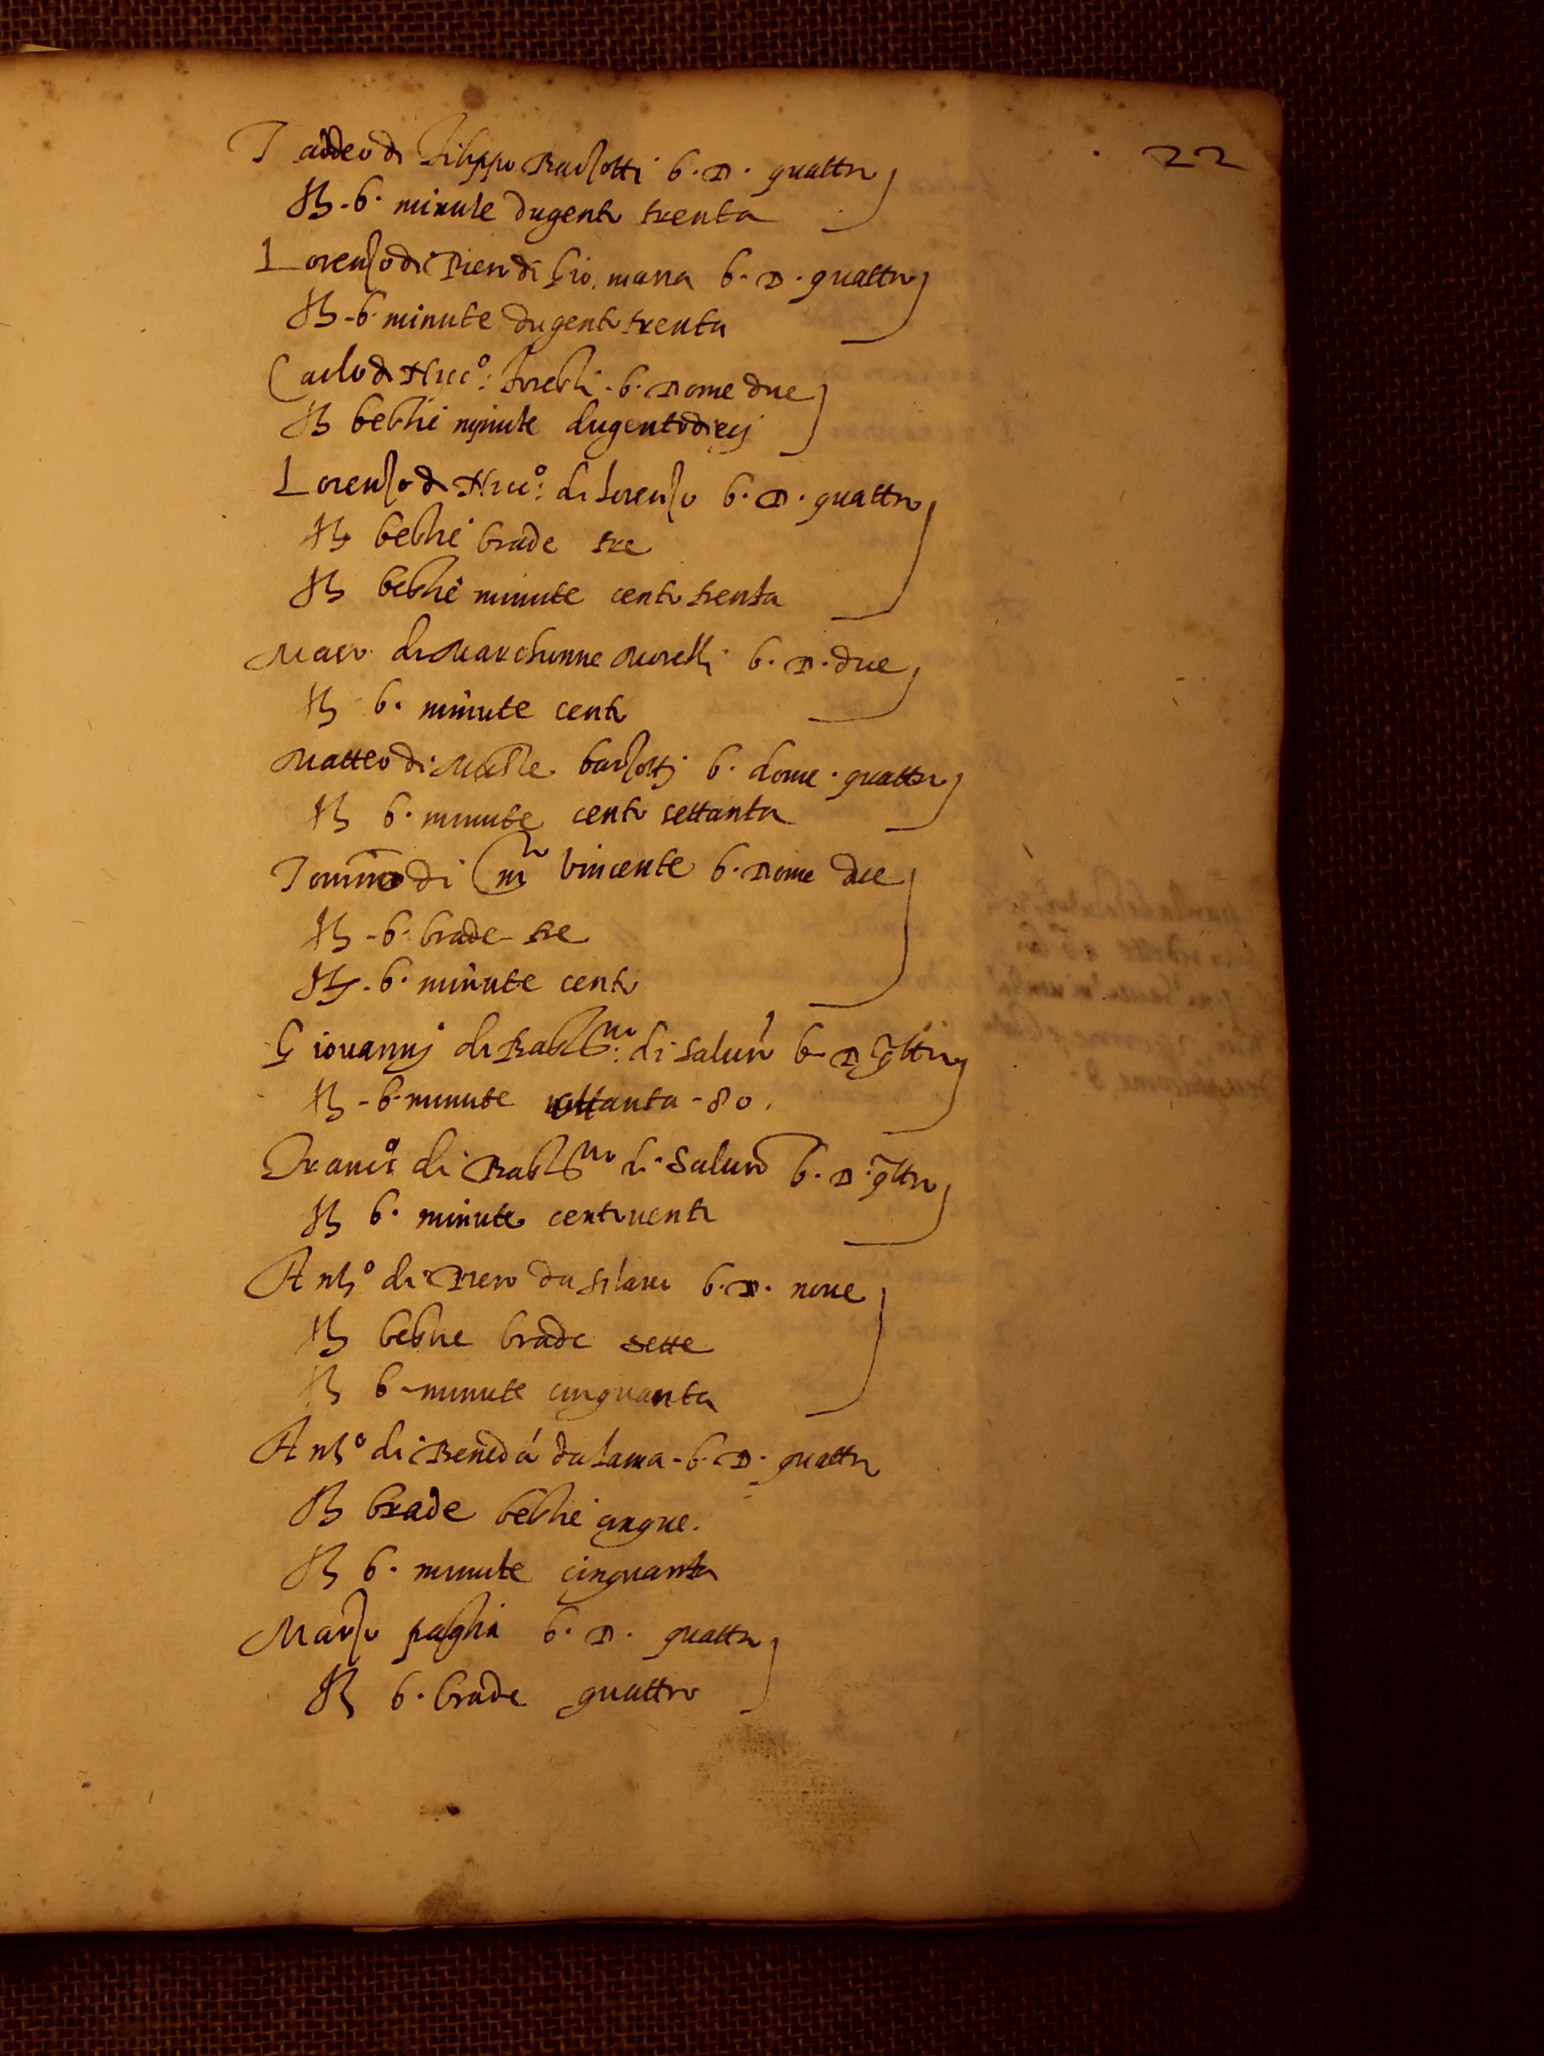 22
Taddeo di Filippo Barzotti b. D. quattro
b. minute dugento trenta
Lorenzo di Piero di Gio. maria b. D. quattro
b. minute dugento trenta
Carlo di b. Dome due
bestie minute dugentodieci
Lorenzo di di Lorenzo b. D. quattro
bestie brade tre
bestie minute cento trenta
Marco di Marchionne Morelli b. D. due
b. minute cento
Matteo di barzotti b. dome. quattro
b. minute cento settanta
Tommo di Vincente b. Dome due
b. brade tre
b. minute cento
Giovannj di di b. D.
b. minute ottanta - 80.
Franco di di b. D.
b. minute centoventi
Anto di Piero da b. D. nove
bestie brade sette
b. minute cinquanta
Anto di da Lama - b. D. quattro
brade bestie cinque.
b. minute cinquanta
Marzo paglia b. D. quattro
b. brade quattro